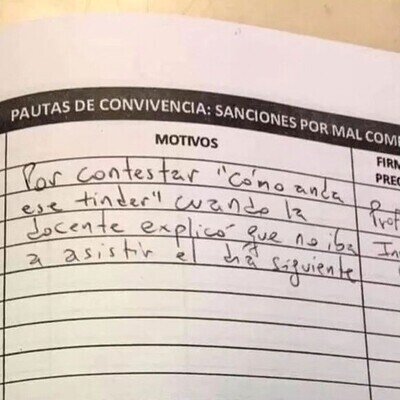 PAUTAS DE CONVIVENCIA: SANCIONES POR MAL COM
MOTIVOS
FIR
PREC
Por contestar "cómo anda
ese tinder" cuando la
docente explicó que no iba
a asistir el día siguiente
Prof
In